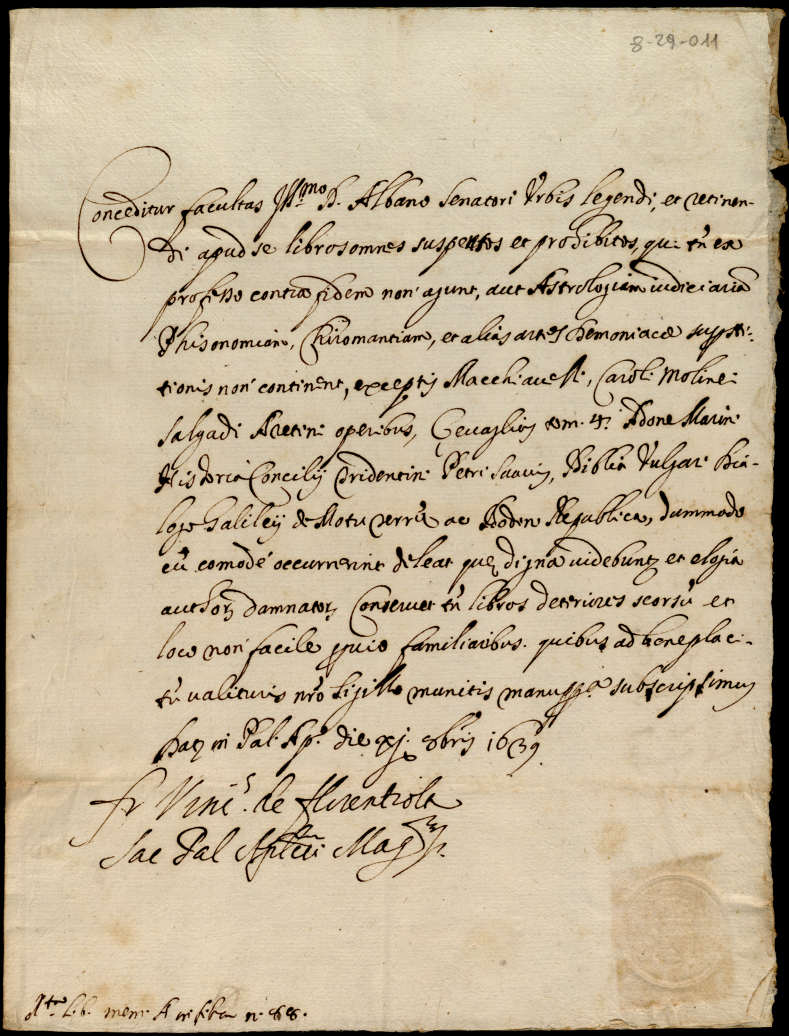 8-29-011
Conceditur facultas Ill.mo D. Albano Senatori Urbis legendi, et retinen-
di apud se libros omnes suspectos et prohibitos, qui tñ ex
professo contra fidem non agunt, aut Astrologiam iudiciaria
Phisonomiam, Chiromantiam, et alias artes demoniacæ supsti-
tionis non continent, exceptis Macchiauelli, Caroli Molinei
Salgadi Aretini operibus, tom. 4. Adone Marini
Historia Concilij Tridentini Petri Suauis, Biblia Vulgari Dia-
logo Galileij de Motu terræ ac Boden Republica, dummodo
cũ comodè occurrerint deleat quę digna uidebunt et elogia
authorꝝ damnatorꝝ Conseruet tñ libros deteriores seorsũ et
loco non facile peruio familiaribus. quibus ad beneplaci-
tũ ualituris nrõ Sigillo munitis manuppa subscripsimus
hac in Pal. Ap. die xj. 8bris 1639
fr Vinc. de florentiola
Sac Pal Aplici Mag.r
lib. mem. n. 88.